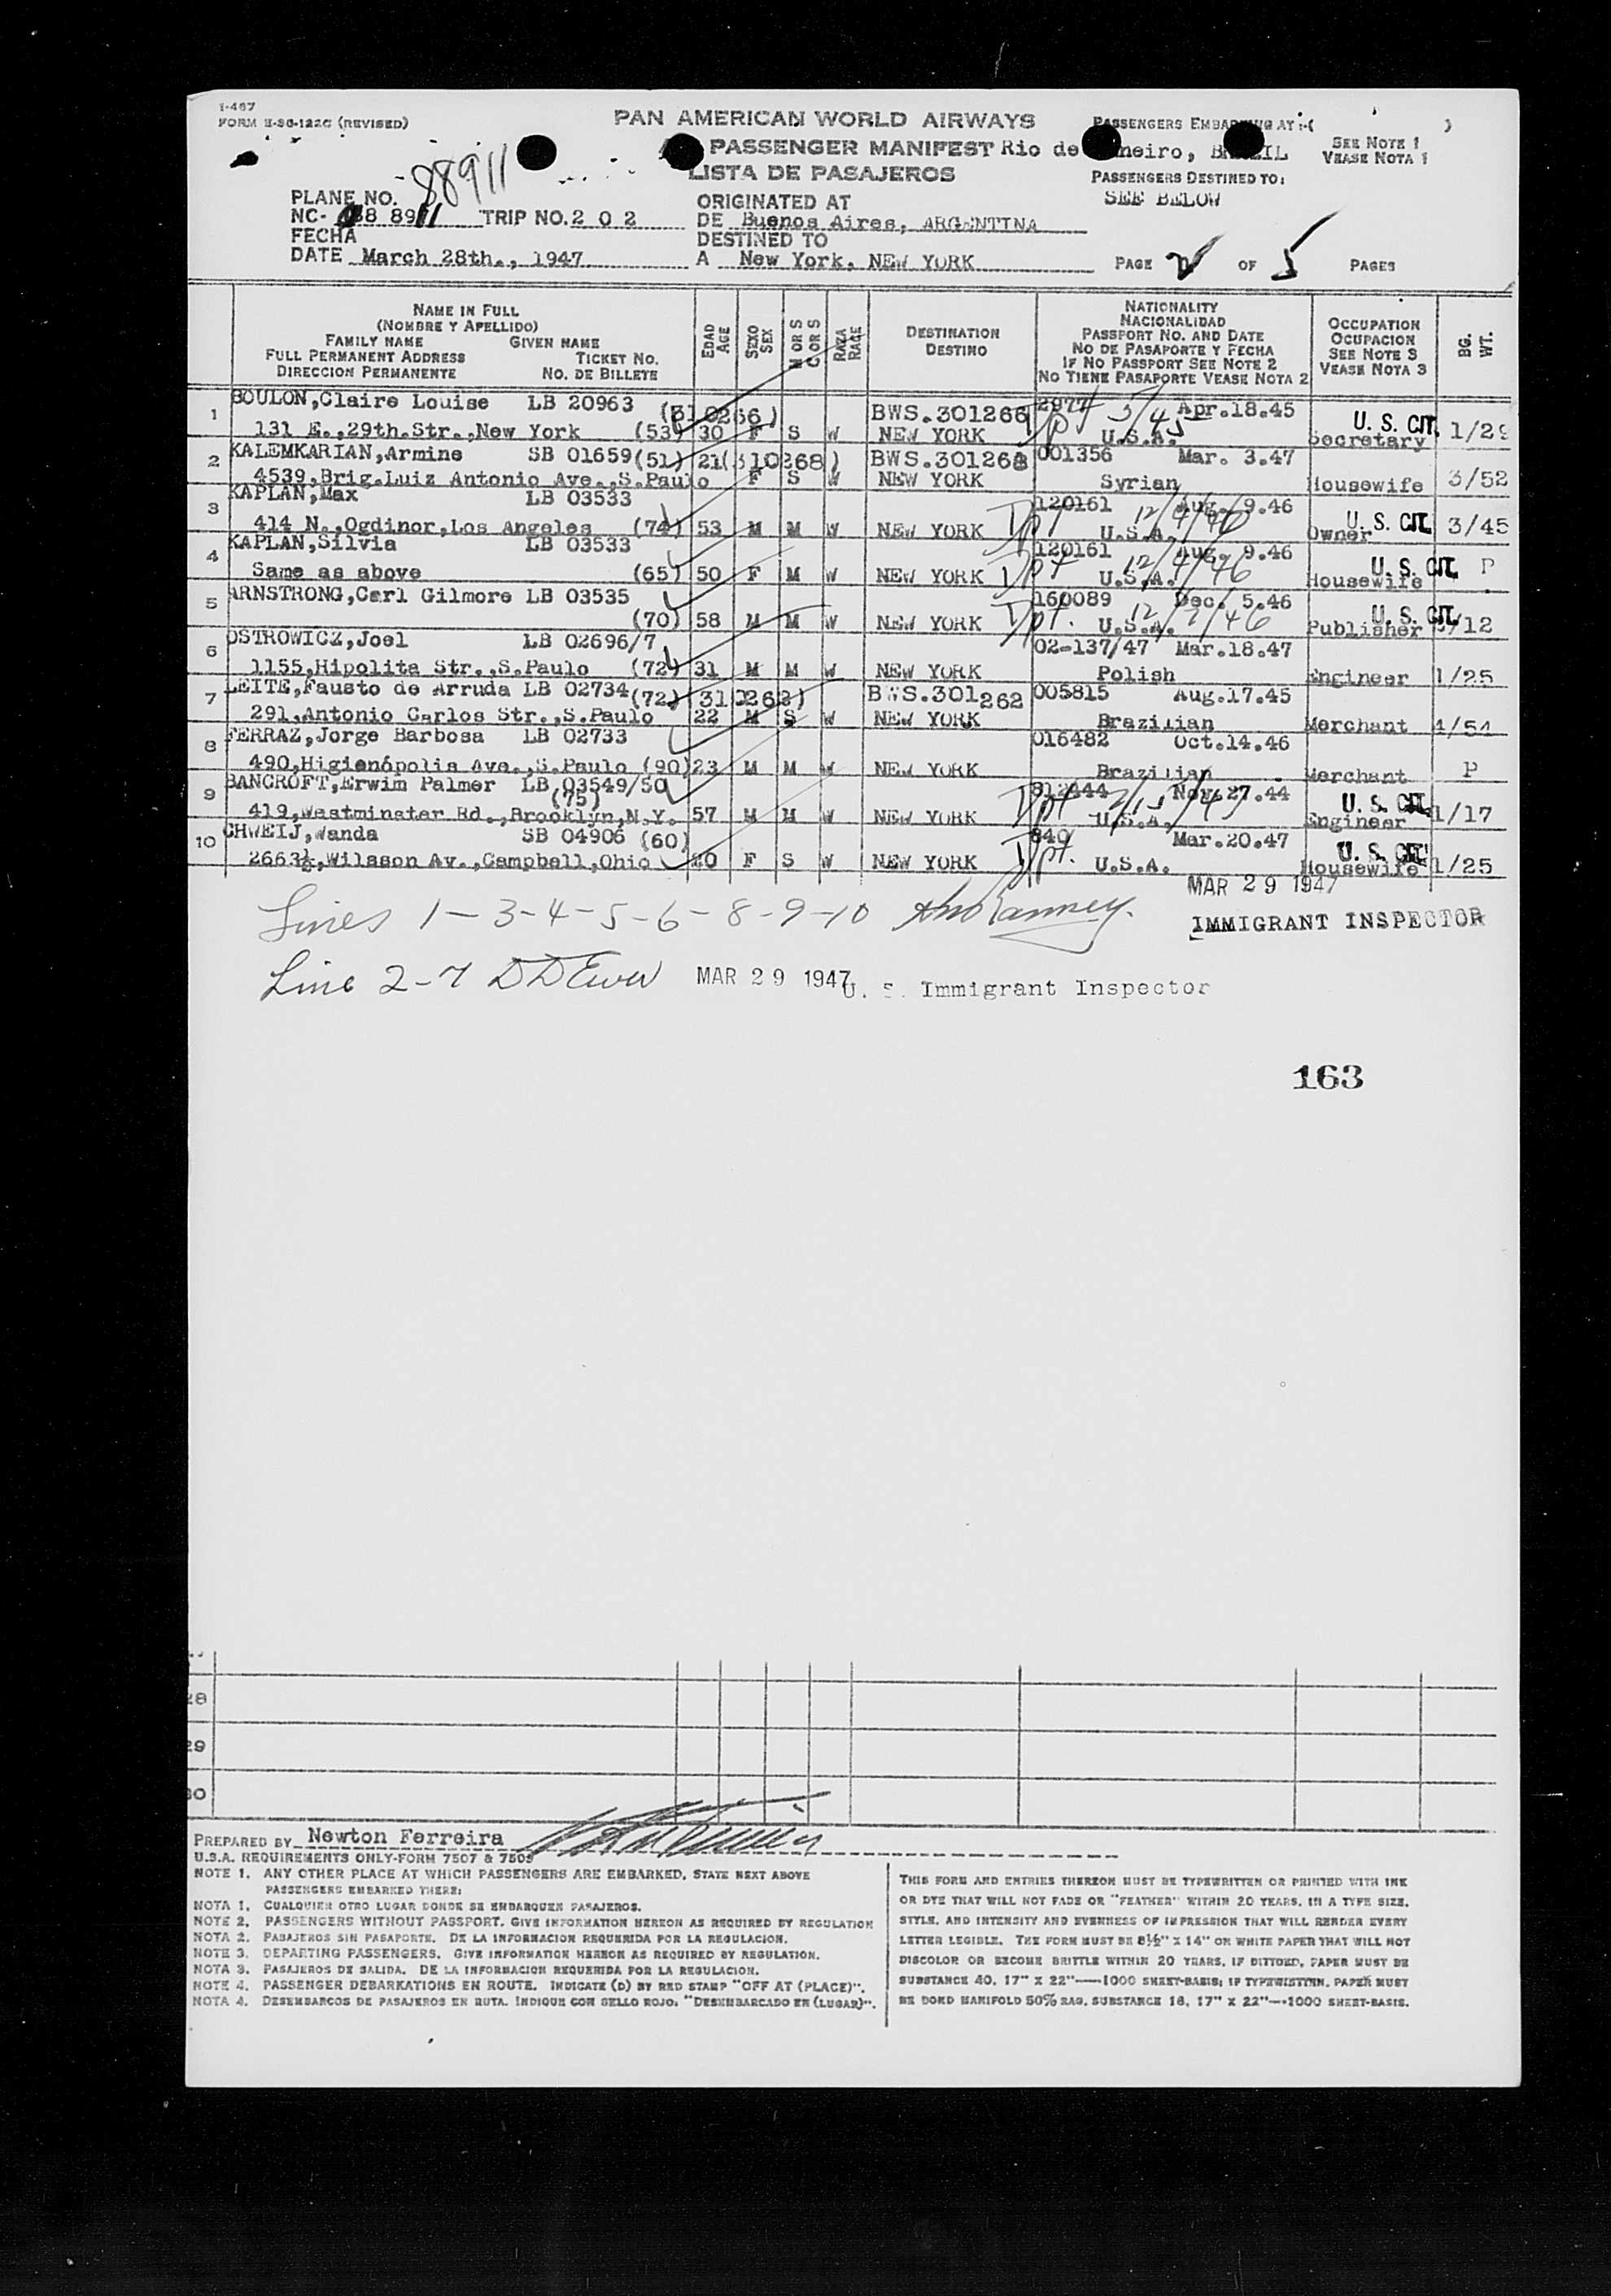 I-467
FORM II-SG-122C (REVISED)
PAN AMERICAN WORLD AIRWAYS
PASSENGER MANIFEST
LISTA DE PASAJEROS
PASSENGERS EMBARKING AT :-( )
Rio de Janeiro, BRAZIL
SEE NOTE 1
VEASE NOTA 1
PASSENGERS DESTINED TO:
SEE BELOW
88911
PLANE NO.
NC- 88 8911 TRIP NO. 2 0 2
FECHA
DATE March 28th., 1947
ORIGINATED AT
DE Buenos Aires, ARGENTINA
DESTINED TO
A New York, NEW YORK
PAGE 2 OF 5 PAGES
NAME IN FULL
(NOMBRE Y APELLIDO)
FAMILY NAME GIVEN NAME
FULL PERMANENT ADDRESS TICKET NO.
DIRECCION PERMANENTE NO. DE BILLETE
EDAD AGE
SEXO SEX
M OR S
C OR S
RAZA RACE
DESTINATION
DESTINO
NATIONALITY
NACIONALIDAD
PASSPORT NO. AND DATE
NO DE PASAPORTE Y FECHA
IF NO PASSPORT SEE NOTE 2
NO TIENE PASAPORTE VEASE NOTA 2
OCCUPATION
OCUPACION
SEE NOTE 3
VEASE NOTA 3
BG. WT.
1 BOULON,Claire Louise LB 20963 (310266) BWS.301266 2977 Apr.18.45 U. S. CIT.
131 E.,29th.Str.,New York (53) 30 F S W NEW YORK U.S.A. Secretary 1/29
2 KALEMKARIAN,Armine SB 01659 (51) 21 (310268) BWS.301268 001356 Mar. 3.47
4539,Brig.Luiz Antonio Ave.,S.Paulo F S W NEW YORK Syrian Housewife 3/52
3 KAPLAN,Max LB 03533 120161 Aug. 9.46 U. S. CIT.
414 N.,Ogdinor,Los Angeles (74) 53 M M W NEW YORK Dpt 12/4/46 U.S.A. Owner 3/45
4 KAPLAN,Silvia LB 03533 120161 Aug. 9.46 U. S. CIT.
Same as above (65) 50 F M W NEW YORK Dpt 12/4/46 U.S.A. Housewife P
5 ARNSTRONG,Carl Gilmore LB 03535 160089 Dec. 5.46 U. S. CIT.
(70) 58 M M W NEW YORK Dpt. U.S.A. Publisher /12
6 OSTROWICZ,Joel LB 02696/7 02-137/47 Mar.18.47
1155,Hipolita Str.,S.Paulo (72) 31 M M W NEW YORK Polish Engineer 1/25
7 LEITE,Fausto de Arruda LB 02734 (72) (310262) BWS.301262 005815 Aug.17.45
291,Antonio Carlos Str.,S.Paulo 22 M S W NEW YORK Brazilian Merchant 4/54
8 FERRAZ,Jorge Barbosa LB 02733 016482 Oct.14.46
490,Higienópolis Ave.,S.Paulo (90) 23 M M W NEW YORK Brazilian Merchant P
9 BANCROFT,Erwim Palmer LB 03549/50 312444 Nov.27.44 U. S. CIT.
(75)
419,Westminster Rd.,Brooklyn,N.Y. 57 M M W NEW YORK Dpt U.S.A. Engineer 1/17
10 CHWEIJ,Wanda SB 04906 (60) 840 Mar.20.47 U. S. CIT.
2663½,Wilsson Av.,Campbell,Ohio 20 F S W NEW YORK Dpt. U.S.A. Housewife 1/25
MAR 29 1947
Lines 1-3-4-5-6-8-9-10
IMMIGRANT INSPECTOR
Line 2-7 MAR 29 1947 U. S. Immigrant Inspector
163
28
29
30
PREPARED BY Newton Ferreira
U.S.A. REQUIREMENTS ONLY-FORM 7507 & 7509
NOTE 1. ANY OTHER PLACE AT WHICH PASSENGERS ARE EMBARKED, STATE NEXT ABOVE
PASSENGERS EMBARKED THERE:
NOTA 1. CUALQUIER OTRO LUGAR DONDE SE EMBARQUEN PASAJEROS.
NOTE 2. PASSENGERS WITHOUT PASSPORT. GIVE INFORMATION HEREON AS REQUIRED BY REGULATION
NOTA 2. PASAJEROS SIN PASAPORTE. DE LA INFORMACION REQUERIDA POR LA REGULACION.
NOTE 3. DEPARTING PASSENGERS. GIVE INFORMATION HEREON AS REQUIRED BY REGULATION.
NOTA 3. PASAJEROS DE SALIDA. DE LA INFORMACION REQUERIDA POR LA REGULACION.
NOTE 4. PASSENGER DEBARKATIONS EN ROUTE. INDICATE (D) BY RED STAMP "OFF AT (PLACE)".
NOTA 4. DESEMBARCOS DE PASAJEROS EN RUTA. INDIQUE CON SELLO ROJO: "DESEMBARCADO EN (LUGAR)".
THIS FORM AND ENTRIES THEREON MUST BE TYPEWRITTEN OR PRINTED WITH INK
OR DYE THAT WILL NOT FADE OR "FEATHER" WITHIN 20 YEARS, IN A TYPE SIZE,
STYLE, AND INTENSITY AND EVENNESS OF IMPRESSION THAT WILL RENDER EVERY
LETTER LEGIBLE. THE FORM MUST BE 8½" X 14" ON WHITE PAPER THAT WILL NOT
DISCOLOR OR BECOME BRITTLE WITHIN 20 YEARS. IF DITTOED, PAPER MUST BE
SUBSTANCE 40, 17" X 22"—1000 SHEET-BASIS; IF TYPEWRITTEN, PAPER MUST
BE BOND MANIFOLD 50% RAG, SUBSTANCE 16, 17" X 22"—1000 SHEET-BASIS.